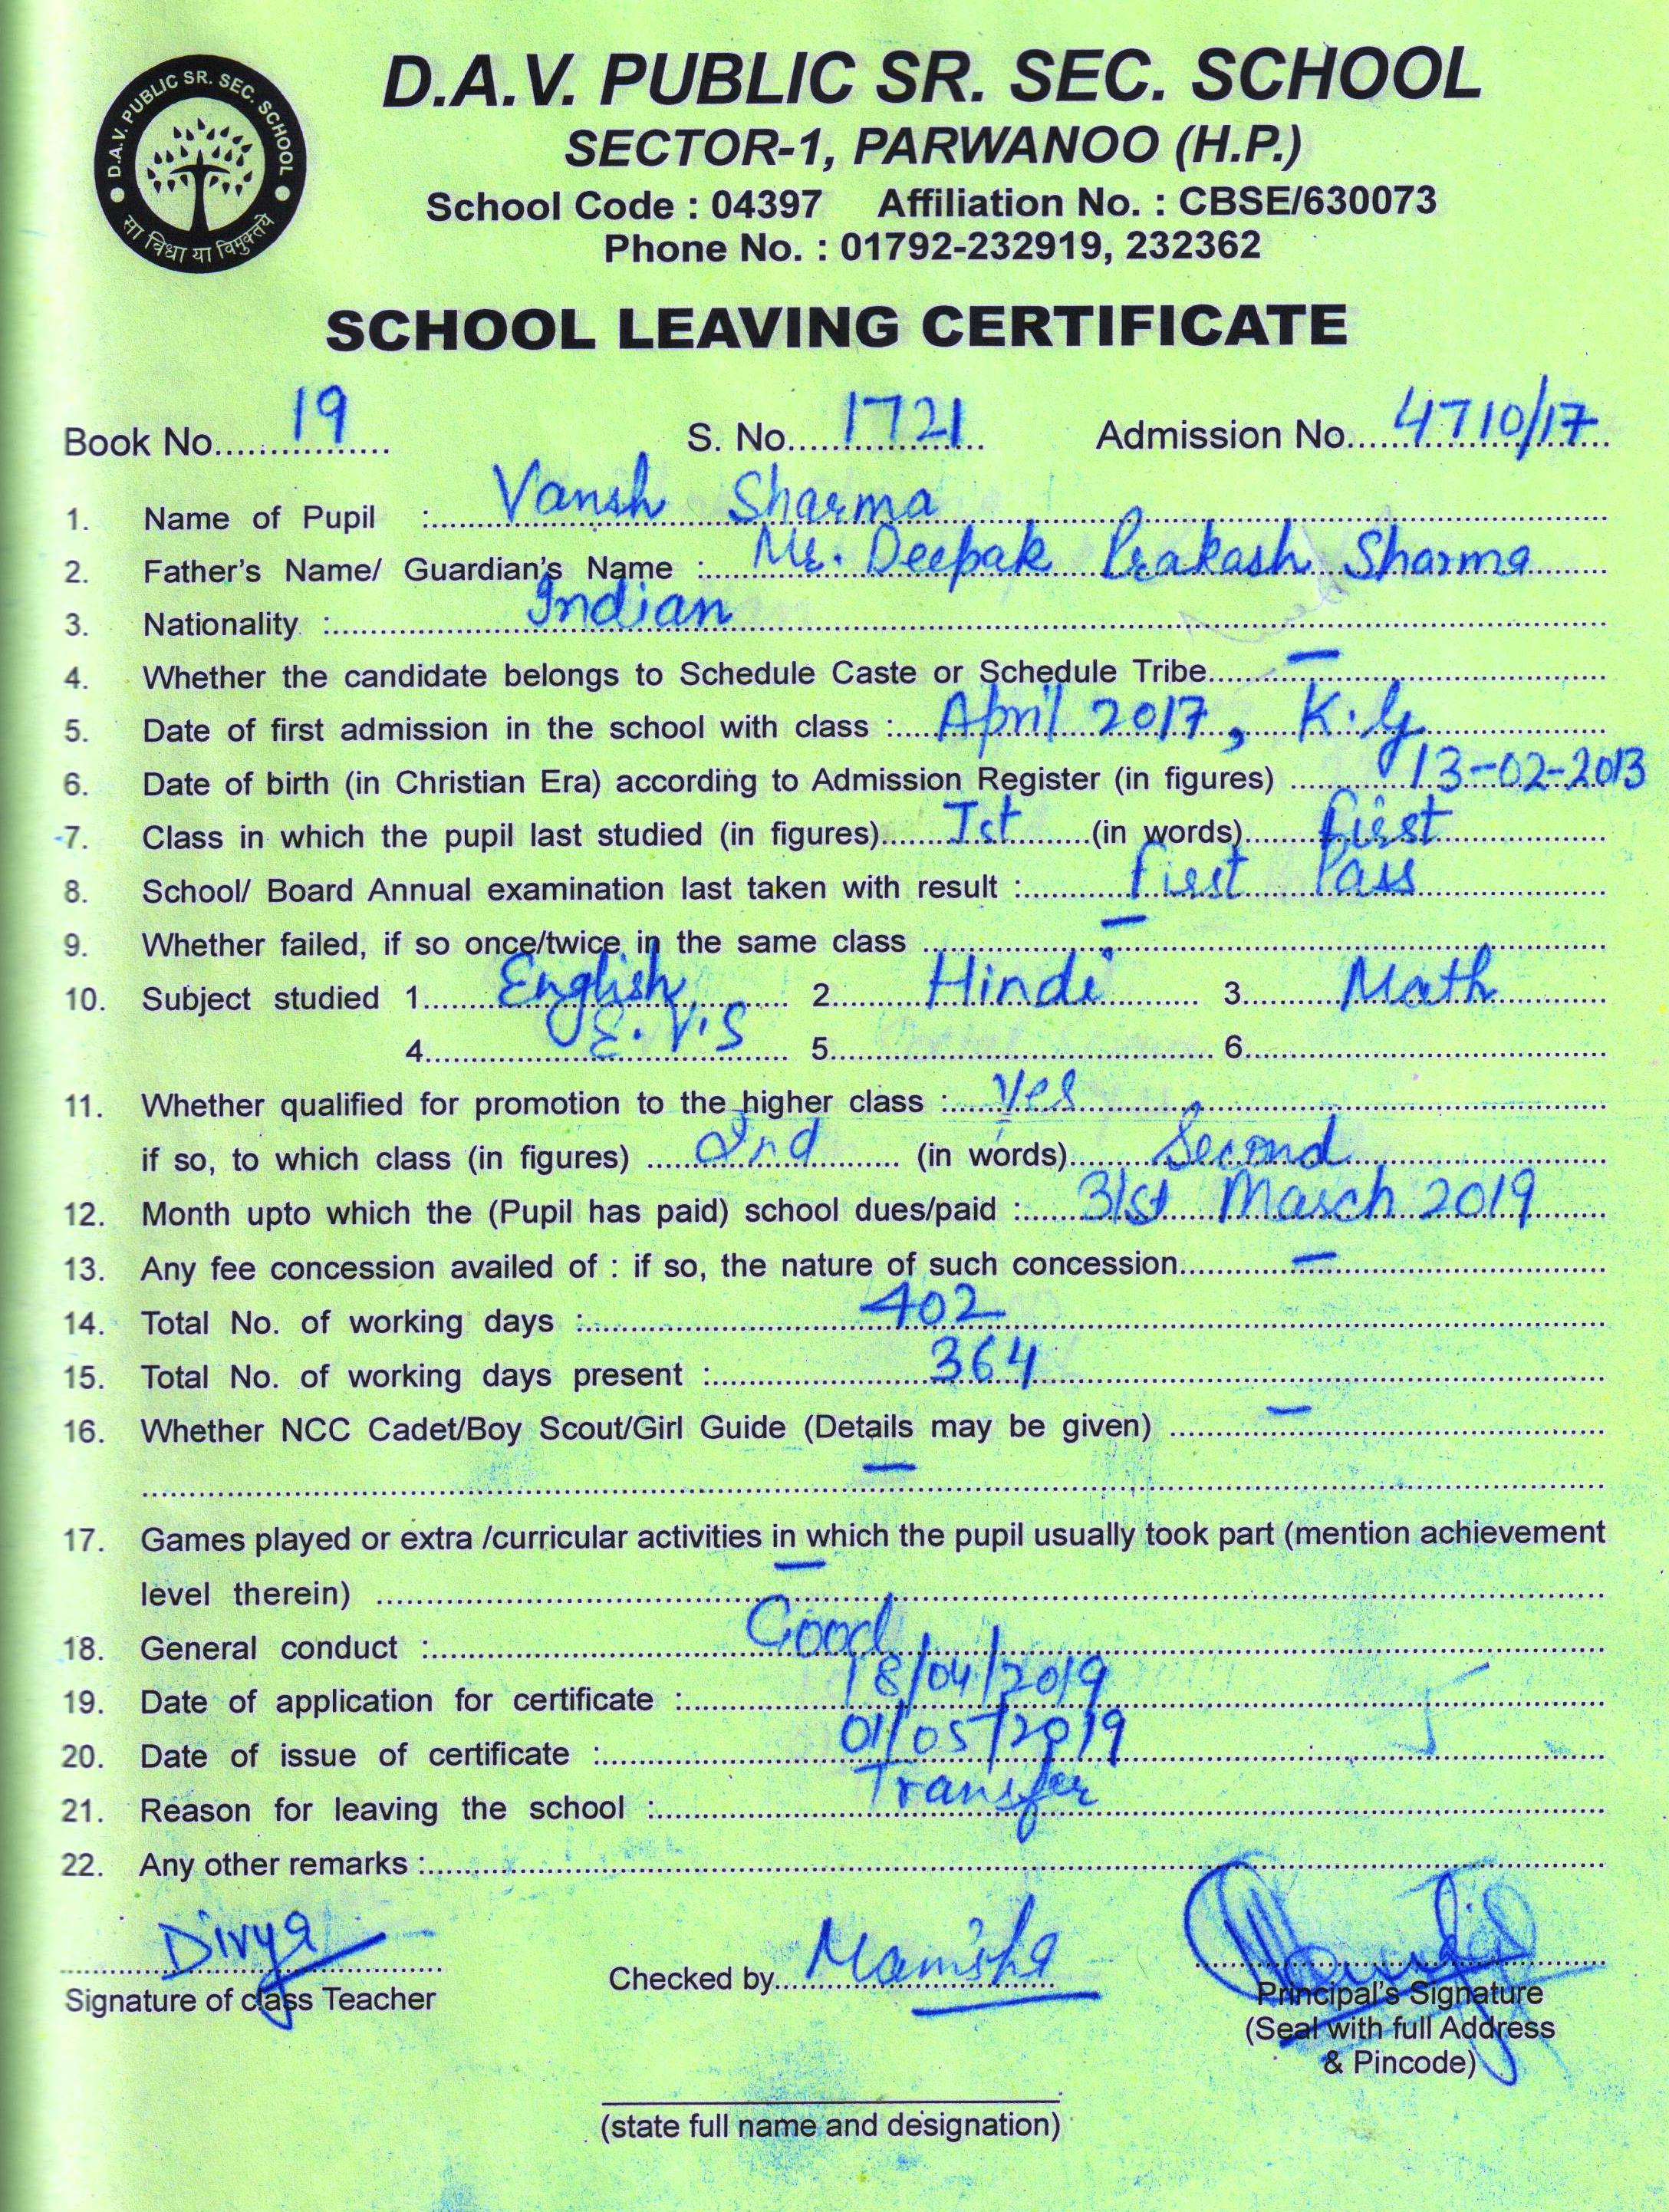 D.A.V. PUBLIC SR. SEC. SCHOOL
सा विद्या या विमुक्तये
D.A.V. PUBLIC SR. SEC. SCHOOL
SECTOR-1, PARWANOO (H.P.)
School Code : 04397 Affiliation No. : CBSE/630073
Phone No. : 01792-232919, 232362
SCHOOL LEAVING CERTIFICATE
Book No. 19 S. No. 1721 Admission No. 4710/17
1. Name of Pupil : Vansh Sharma
2. Father's Name/ Guardian's Name : Mr. Deepak Prakash Sharma
3. Nationality : Indian
4. Whether the candidate belongs to Schedule Caste or Schedule Tribe. —
5. Date of first admission in the school with class : April 2017, K.G
6. Date of birth (in Christian Era) according to Admission Register (in figures) 13-02-2013
7. Class in which the pupil last studied (in figures) Ist (in words) First
8. School/ Board Annual examination last taken with result : First Pass
9. Whether failed, if so once/twice in the same class —
10. Subject studied 1. English 2. Hindi 3. Math
4. E.V.S 5. 6.
11. Whether qualified for promotion to the higher class : Yes
if so, to which class (in figures) 2nd (in words) Second
12. Month upto which the (Pupil has paid) school dues/paid : 31st March 2019
13. Any fee concession availed of : if so, the nature of such concession. —
14. Total No. of working days : 402
15. Total No. of working days present : 364
16. Whether NCC Cadet/Boy Scout/Girl Guide (Details may be given) —
—
17. Games played or extra /curricular activities in which the pupil usually took part (mention achievement
level therein) —
18. General conduct : Good
19. Date of application for certificate : 18/04/2019
20. Date of issue of certificate : 01/05/2019
21. Reason for leaving the school : Transfer
22. Any other remarks :
Divya
Signature of class Teacher
Checked by Manisha
Principal's Signature
(Seal with full Address
& Pincode)
(state full name and designation)